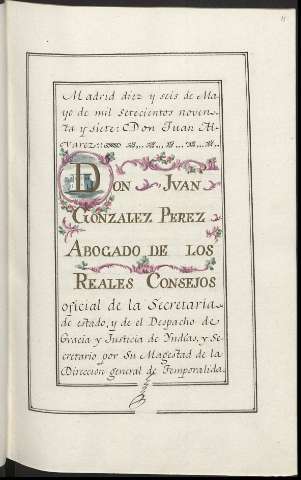 Madrid diez y seis de Ma-
yo de mil setecientos noven-
ta y siete: Don Juan Al-
varez:
DON JVAN
GONZALEZ PEREZ
ABOGADO DE LOS
REALES CONSEJOS
oficial de la Secretaria
de estado, y de el Despacho de
Gracia y Justicia de Yndias, y Se-
cretario por Su Magestad de la
Direccion general de Temporalida